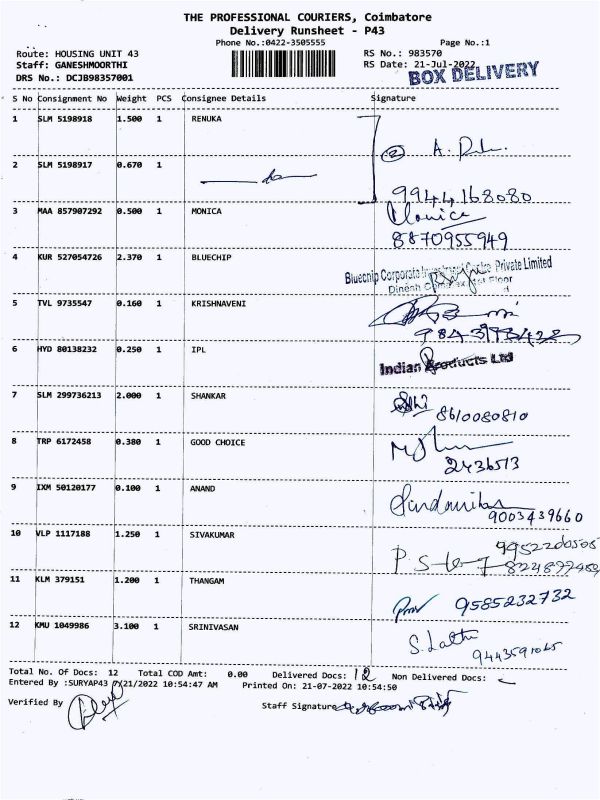 THE PROFESSIONAL COURIERS, Coimbatore
Delivery Runsheet - P43
Phone No.:0422-3505555 Page No.:1
Route: HOUSING UNIT 43 RS No.: 983570
Staff: GANESHMOORTHI RS Date: 21-Jul-2022
DRS No.: DCJB98357001 BOX DELIVERY
S No Consignment No Weight PCS Consignee Details Signature
1 SLM 5198918 1.500 1 RENUKA
2 SLM 5198917 0.670 1
9944168080
3 MAA 857907292 0.500 1 MONICA Monica
8870955949
4 KUR 527054726 2.370 1 BLUECHIP
Bluechip Corporate Private Limited
5 TVL 9735547 0.160 1 KRISHNAVENI
6 HYD 80138232 0.250 1 IPL
Indian Products Ltd
7 SLM 299736213 2.000 1 SHANKAR
8610080810
8 TRP 6172458 0.380 1 GOOD CHOICE
2436513
9 IXM 50120177 0.100 1 ANAND
9003439660
10 VLP 1117188 1.250 1 SIVAKUMAR
11 KLM 379151 1.200 1 THANGAM
9585232732
12 KMU 1049986 3.100 1 SRINIVASAN
S. Latha
Total No. Of Docs: 12 Total COD Amt: 0.00 Delivered Docs: 12 Non Delivered Docs:
Entered By :SURYAP43 7/21/2022 10:54:47 AM Printed On: 21-07-2022 10:54:50
Verified By Staff Signature